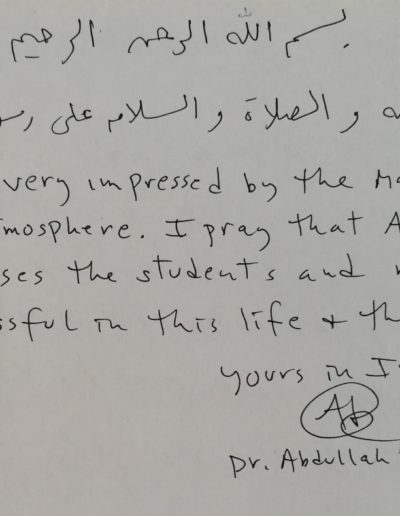 بسم الله الرحمن الرحيم
والصلاة والسلام على
very impressed by the
mosphere. I pray that
ses the students and
ssful in this life + th
yours in I
Ab
Dr. Abdullah